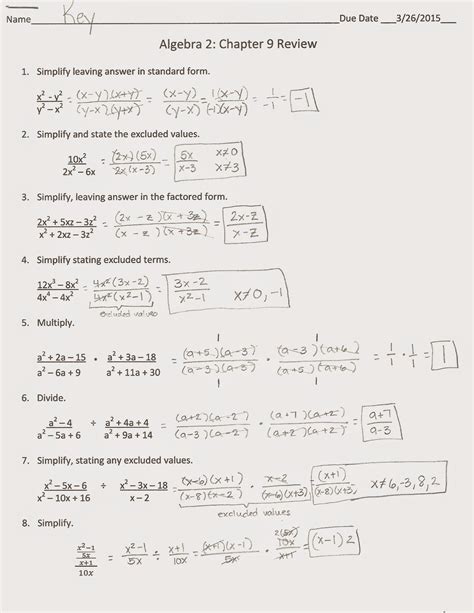 Name Key Due Date 3/26/2015
Algebra 2: Chapter 9 Review
1. Simplify leaving answer in standard form.
(x² - y²)/(y² - x²) = (x-y)(x+y)/(y-x)(y+x) = (x-y)/(y-x) = 1(x-y)/(-1)(x-y) = 1/-1 = -1
2. Simplify and state the excluded values.
10x²/(2x² - 6x) = (2x)(5x)/2x(x-3) = 5x/(x-3) x≠0 x≠3
3. Simplify, leaving answer in the factored form.
(2x² + 5xz - 3z²)/(x² + 2xz - 3z²) = (2x - z)(x + 3z)/(x - z)(x + 3z) = (2x-z)/(x-z)
4. Simplify stating excluded terms.
(12x³ - 8x²)/(4x⁴ - 4x²) = 4x²(3x-2)/4x²(x²-1) = (3x-2)/(x²-1) x≠0,-1
excluded values
5. Multiply.
1 1
(a² + 2a - 15)/(a² - 6a + 9) • (a² + 3a - 18)/(a² + 11a + 30) = (a+5)(a-3)/(a-3)(a-3) • (a-3)(a+6)/(a+5)(a+6) = 1/1 · 1/1 = 1
1 1
6. Divide.
(a² - 4)/(a² - 5a + 6) ÷ (a² + 4a + 4)/(a² + 9a + 14) = (a+2)(a-2)/(a-3)(a-2) • (a+7)(a+2)/(a+2)(a+2) = (a+7)/(a-3)
7. Simplify, stating any excluded values.
(x² - 5x - 6)/(x² - 10x + 16) ÷ (x² - 3x - 18)/(x - 2) = (x-6)(x+1)/(x-8)(x-2) • (x-2)/(x-6)(x+3) = (x+1)/(x-8)(x+3) x≠6,-3,8,2
excluded values
8. Simplify.
((x²-1)/5x)/((x+1)/10x) = (x²-1)/5x ÷ (x+1)/10x = (x+1)(x-1)/5x • 2(5x) 10x/(x+1) = (x-1)2